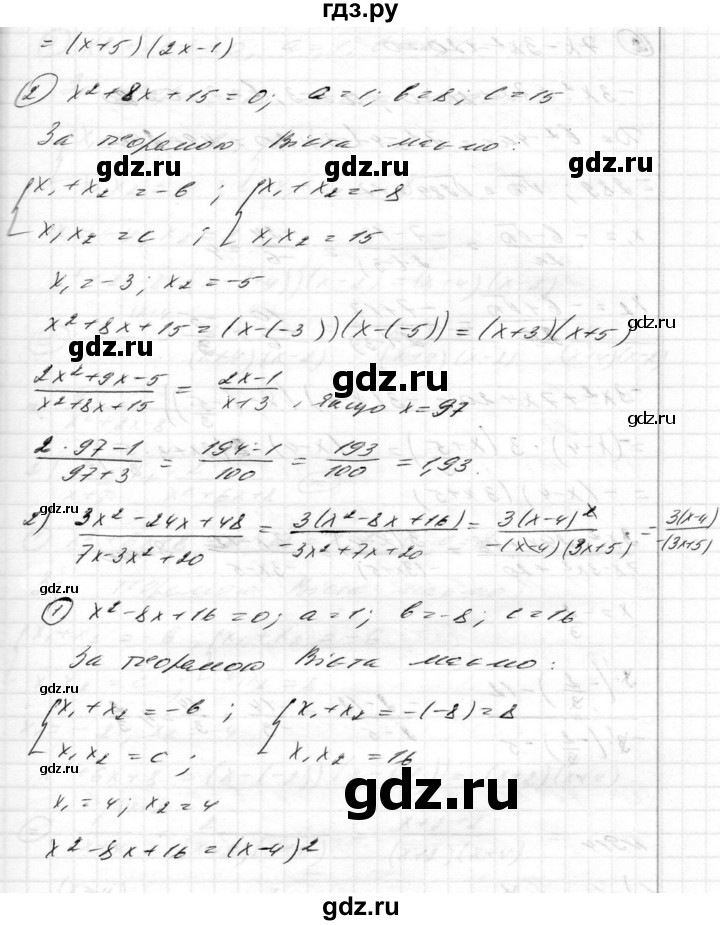 гдз.ру
= (x+5)(2x-1)
② x²+8x+15=0; a=1; b=8; c=15
За теоремою Вієта маємо:
gdz.ru gdz.ru gdz.ru
{x₁+x₂=-b; {x₁+x₂=-8
x₁x₂=c; x₁x₂=15
x₁=-3; x₂=-5
x²+8x+15=(x-(-3))(x-(-5))=(x+3)(x+5)
gdz.ru gdz.ru
(2x²+9x-5)/(x²+8x+15) = (2x-1)/(x+3), якщо x=97
gdz.ru gdz.ru
(2·97-1)/(97+3) = (194-1)/100 = 193/100 = 1,93.
gdz.ru
2) (3x²-24x+48)/(7x-3x²+20) = 3(x²-8x+16)/(-3x²+7x+20) = 3(x-4)²/(-(x-4)(3x+5)) = 3(x-4)/(-(3x+5))
gdz.ru gdz.ru gdz.ru
① x²-8x+16=0; a=1; b=-8; c=16
За теоремою Вієта маємо:
gdz.ru
{x₁+x₂=-b; {x₁+x₂=-(-8)=8
x₁x₂=c; x₁x₂=16
gdz.ru gdz.ru
x₁=4; x₂=4
x²-8x+16=(x-4)²
gdz.ru